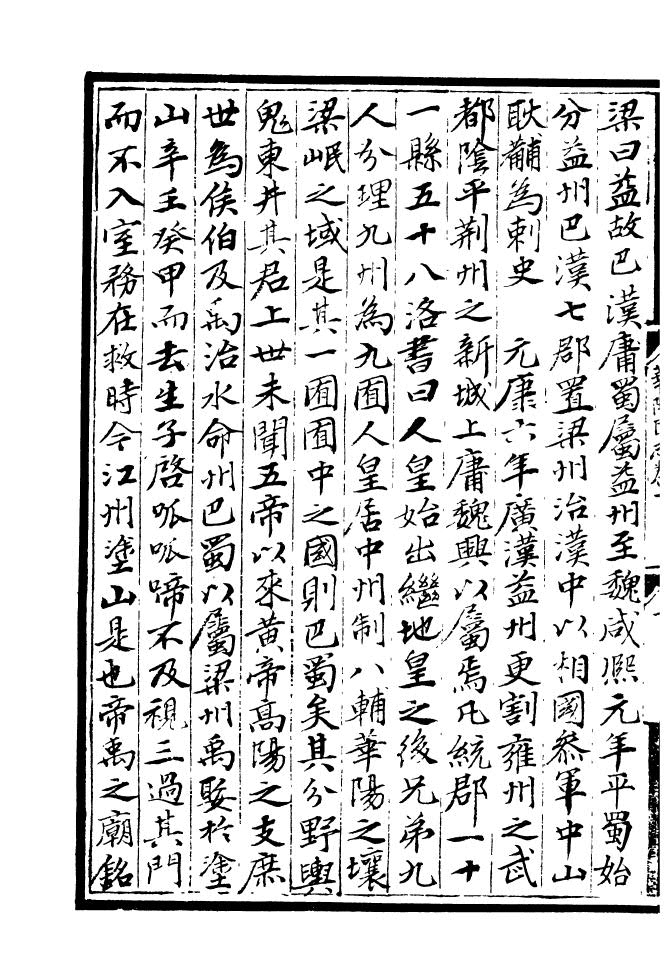 梁曰益故巴漢庸蜀屬益州至魏咸熙元年平蜀始
分益州巴漢七郡置梁州治漢中以相國叅軍中山
耿黼為刺史　元康六年廣漢益州更割雍州之武
都陰平荆州之新城上庸魏興以屬焉凡統郡一十
一縣五十八洛書曰人皇始出繼地皇之後兄弟九
人分理九州為九囿人皇居中州制八輔華陽之壤
梁岷之域是其一囿囿中之國則巴蜀矣其分野輿
鬼東井其君上世未聞五帝以來黄帝高陽之支庶
世為侯伯及禹治水命州巴蜀以屬梁州禹娶於塗
山辛壬癸甲而去生子啓呱呱啼不及視三過其門
而不入室務在救時今江州塗山是也帝禹之廟銘